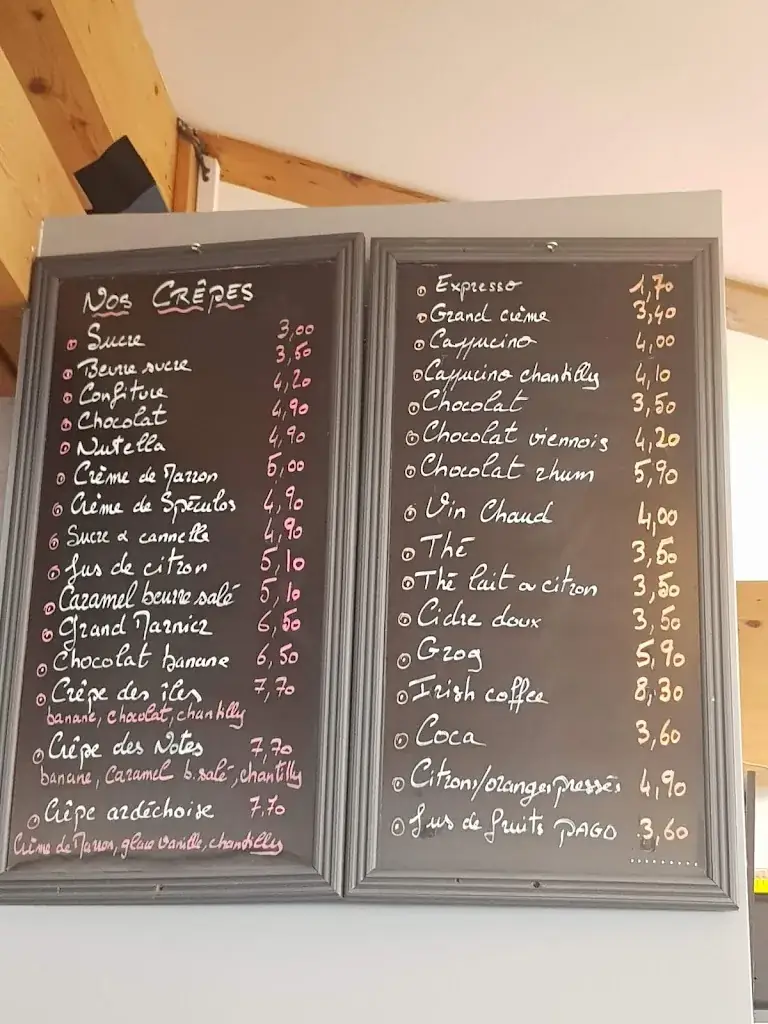 Nos Crêpes
Sucre 3,00
Beurre sucre 3,50
Confiture 4,20
Chocolat 4,90
Nutella 4,90
Crème de Marron 5,00
Crème de Spéculos 4,90
Sucre & cannelle 4,90
Jus de citron 5,10
Caramel beurre salé 5,10
Grand Marnier 6,50
Chocolat banane 6,50
Crêpe des îles 7,70
banane, chocolat, chantilly
Crêpe des Notes 7,70
banane, caramel b. salé, chantilly
Crêpe ardéchoise 7,70
Crème de Marron, glace vanille, chantilly
Expresso 1,70
Grand crème 3,40
Cappucino 4,00
Cappucino chantilly 4,10
Chocolat 3,50
Chocolat viennois 4,20
Chocolat rhum 5,90
Vin Chaud 4,00
Thé 3,50
Thé lait ou citron 3,50
Cidre doux 3,50
Grog 5,90
Irish coffee 8,30
Coca 3,60
Citrons/oranges pressés 4,90
Jus de fruits PAGO 3,60